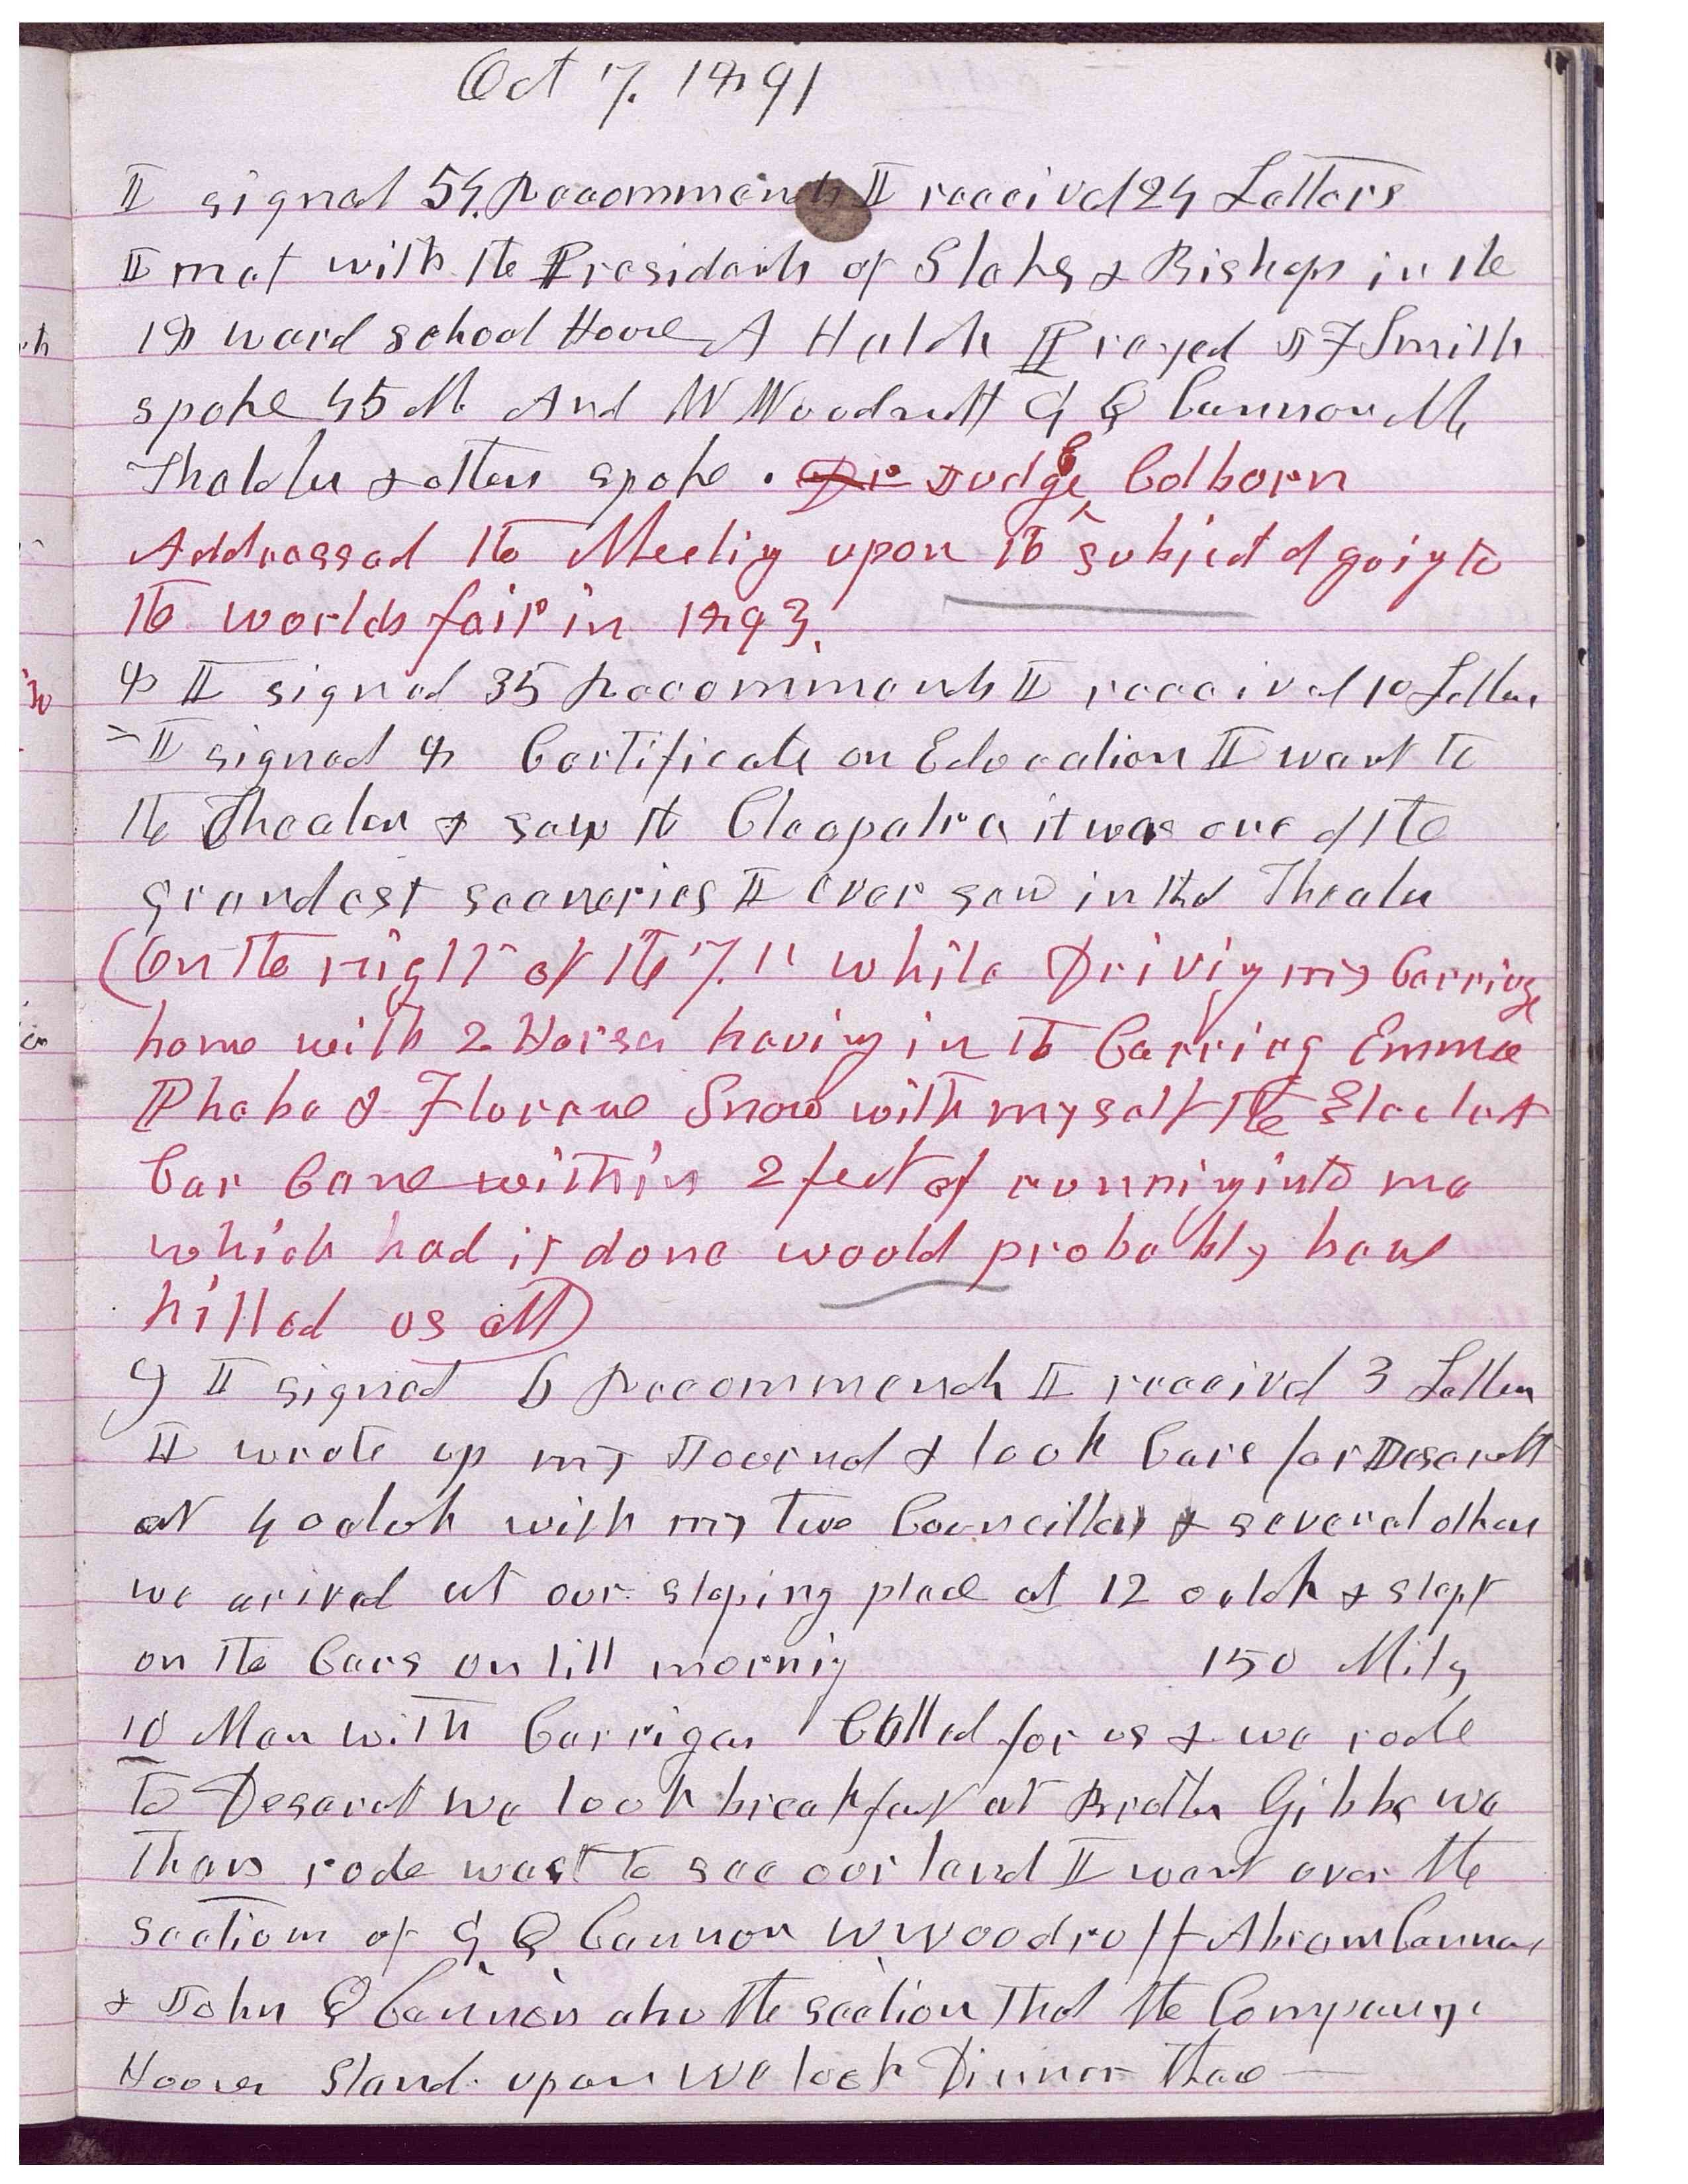 Oct 7, 1891
I signed 54, Recommends I received 24 Letters
I met with the Presidents of Stakes & Bishops in the
18 ward school House A Hatch Prayed J F Smith
spoke 45 M. And W Woodruff G Q Cannon M
Thatcher & others spoke. Dr Judge Colborn
Addressed the Meeting upon the subject of going to
the worlds fair in 1893,
8 I signed 35 Recommends I received 10 Letters
I signed 8 Certificate on Education I went to
the Theater & saw the Cleopatra it was one of the
grandest sceeneries I ever saw in the Theater
(On the night of the 7, 11 while Driving my Carriage
home with 2 Horses having in the Carriag Emma
Phebe & Florence Snow with myself the Electect
Car Came within 2 feet of running into me
which had it done would probably have
killed us all)
9 I signed 6 Recommends I received 3 Letters
I wrote up my Journal & took Cars for Deserett
at 4 oclok with my two Councillors & several others
we arived at our stoping place at 12 oclok & slept
on the Cars on till mornig 150 Miles
10 Men with Carriges Called for us & we rode
to Deseret we took breakfast at Brother Gibbs we
then rode west to see our land I went over the
sections of G Q Cannon W Woodruff Abram Cannon
& John Q Cannon also the section that the Company
House stand upon We took Dinner thare